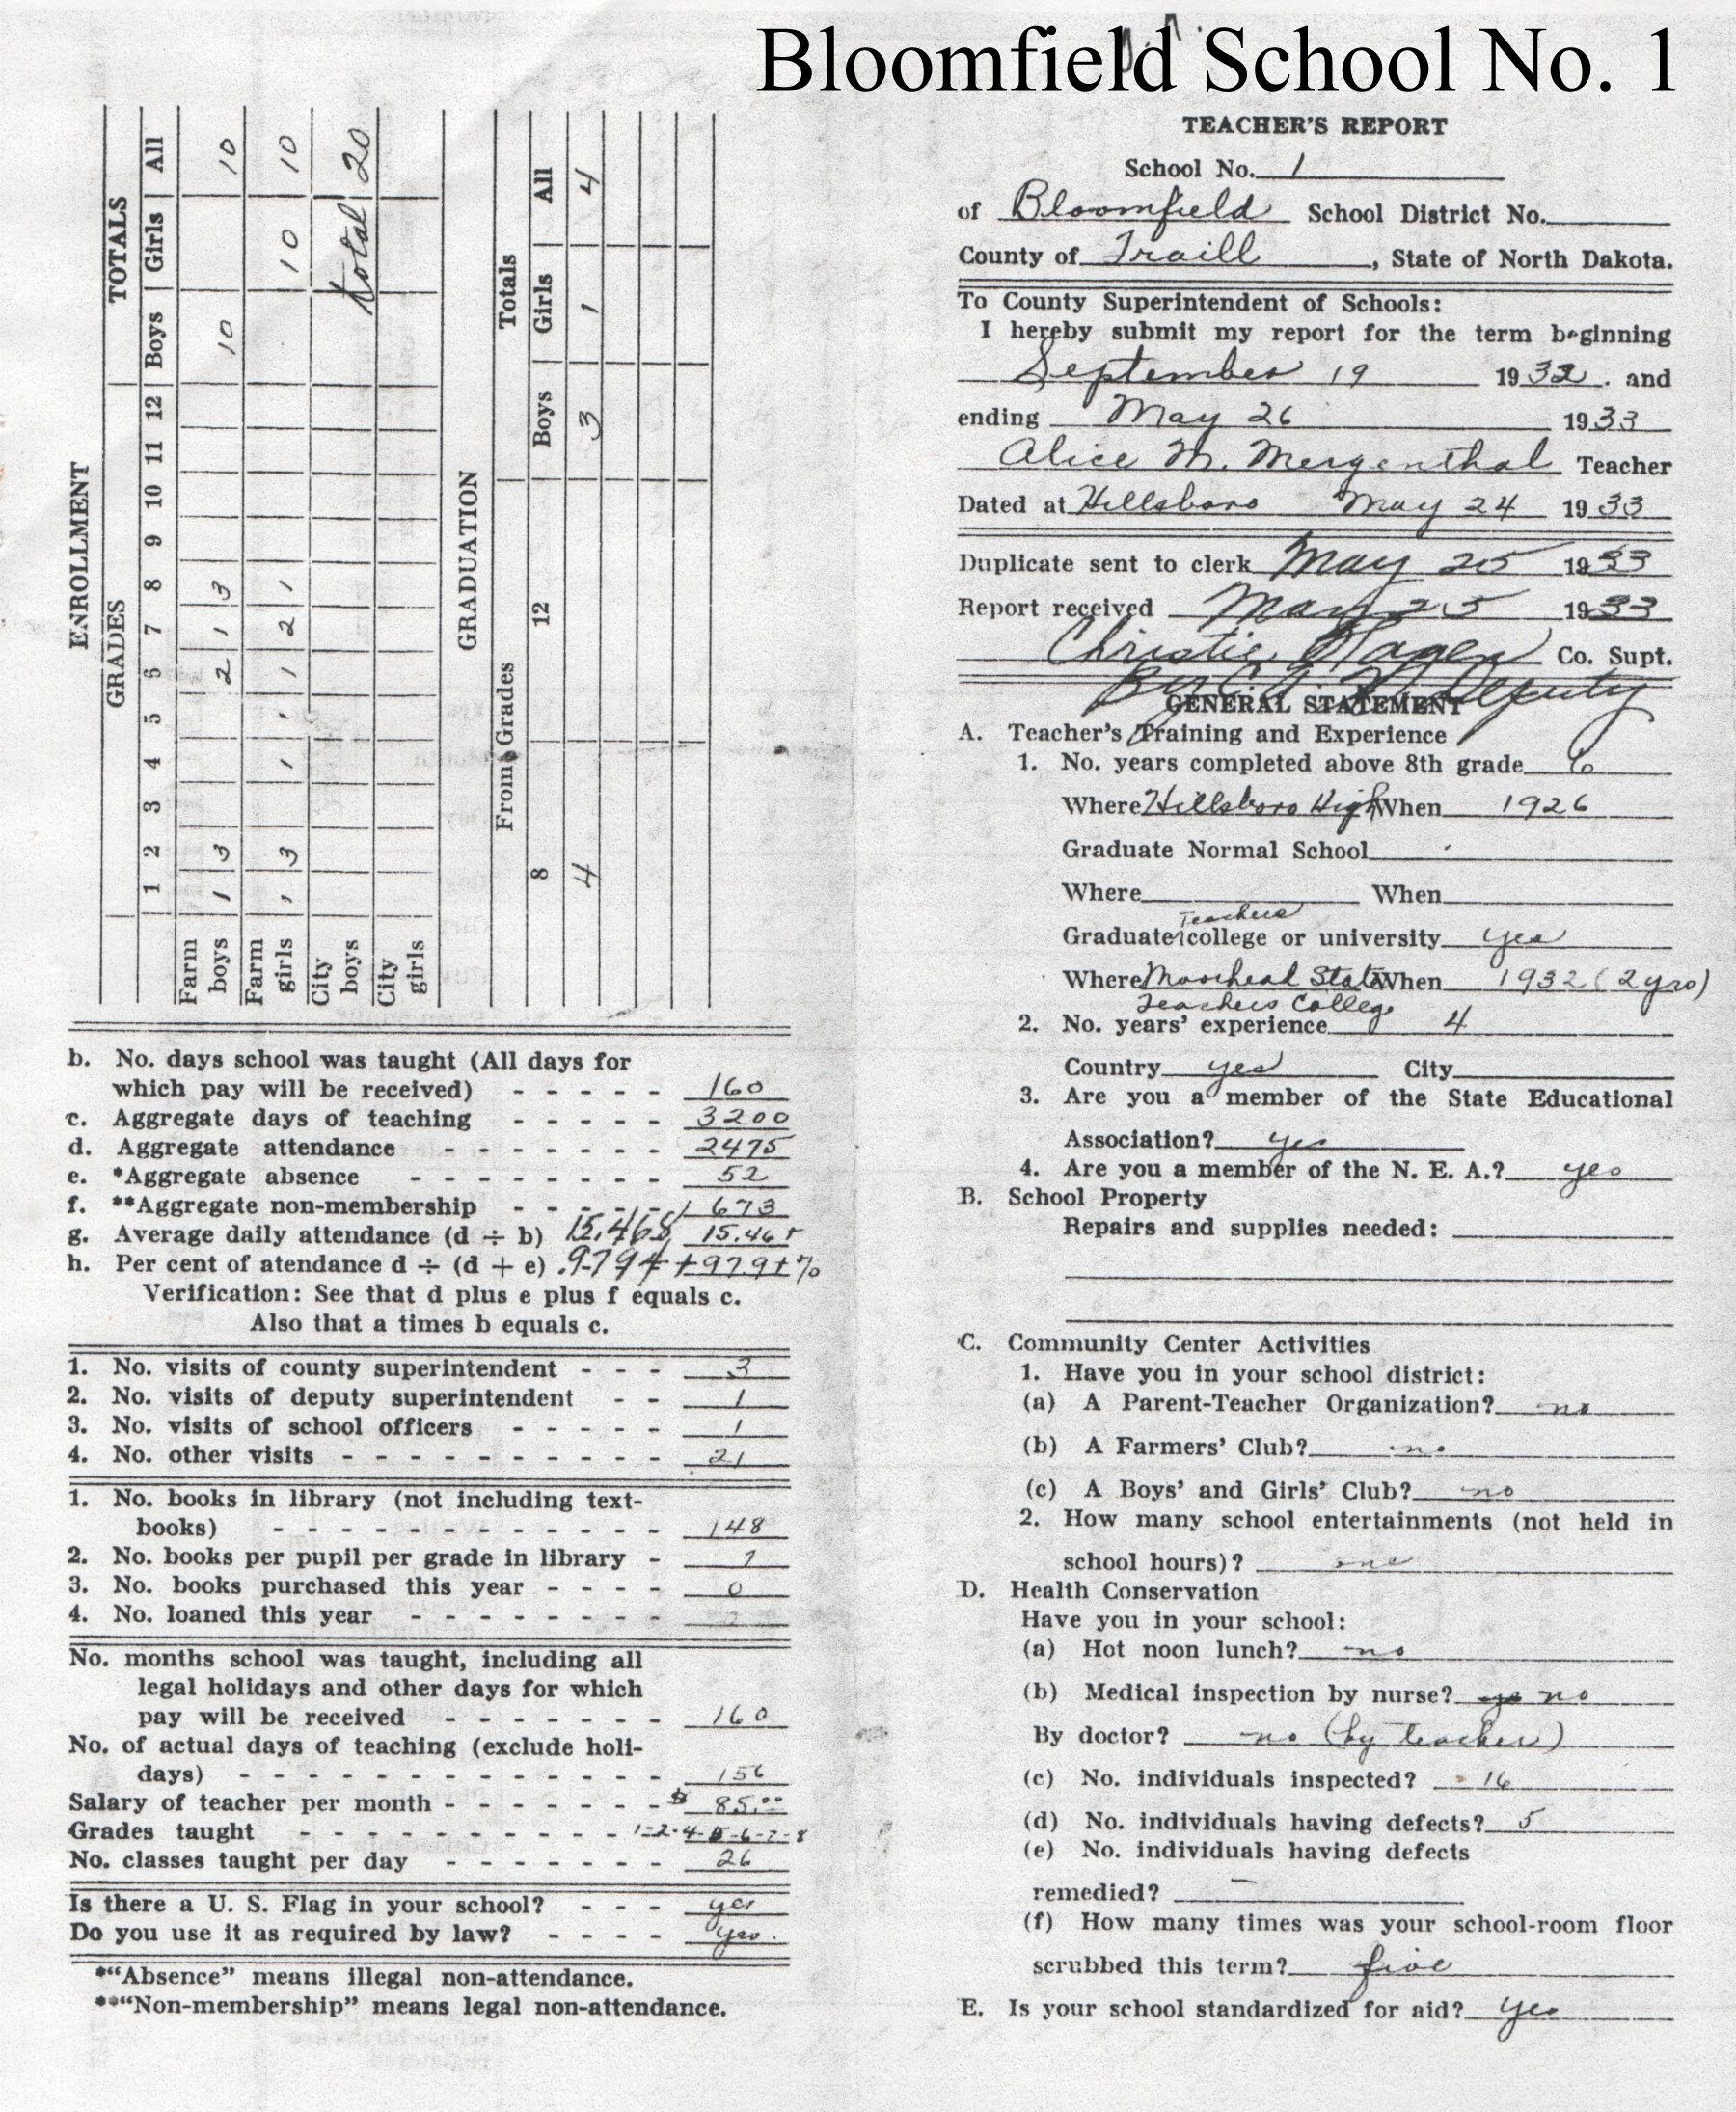 Bloomfield School No. 1
ENROLLMENT
GRADES TOTALS
1 2 3 4 5 6 7 8 9 10 11 12 Boys Girls All
Farm boys 1 3 2 1 3 10 10
Farm girls 1 3 1 1 1 2 1 10 10
City boys Total 20
City girls
GRADUATION
From Grades Totals
8 12 Boys Girls All
4 3 1 4
b. No. days school was taught (All days for
which pay will be received) - - - - - 160
c. Aggregate days of teaching - - - - - 3200
d. Aggregate attendance - - - - - - - 2475
e. *Aggregate absence - - - - - - - - 52
f. **Aggregate non-membership - - - - - 673
g. Average daily attendance (d ÷ b) 15.468 15.46+
h. Per cent of atendance d ÷ (d + e) .9794+ +97.9+%
Verification: See that d plus e plus f equals c.
Also that a times b equals c.
1. No. visits of county superintendent - - - 3
2. No. visits of deputy superintendent - - 1
3. No. visits of school officers - - - - - 1
4. No. other visits - - - - - - - - - - 21
1. No. books in library (not including text-
books) - - - - - - - - - - - - 148
2. No. books per pupil per grade in library - 7
3. No. books purchased this year - - - - 0
4. No. loaned this year - - - - - - - -
No. months school was taught, including all
legal holidays and other days for which
pay will be received - - - - - - - 160
No. of actual days of teaching (exclude holi-
days) - - - - - - - - - - - - - 156
Salary of teacher per month - - - - - - - $ 85.00
Grades taught - - - - - - - - - - 1-2-4-5-6-7-8
No. classes taught per day - - - - - - - 26
Is there a U. S. Flag in your school? - - - yes
Do you use it as required by law? - - - - yes.
*"Absence" means illegal non-attendance.
**"Non-membership" means legal non-attendance.
TEACHER'S REPORT
School No. 1
of Bloomfield School District No.
County of Traill, State of North Dakota.
To County Superintendent of Schools:
I hereby submit my report for the term beginning
September 19 1932. and
ending May 26 1933
Alice M. Mergenthal Teacher
Dated at Hillsboro May 24 1933
Duplicate sent to clerk May 25 1933
Report received May 25 1933
Christie Hagen Co. Supt.
By Deputy
GENERAL STATEMENT
A. Teacher's Training and Experience
1. No. years completed above 8th grade 6
Where Hillsboro High When 1926
Graduate Normal School
Where When
Teachers
Graduate college or university yes
Where Moorhead State When 1932 (2 yrs)
Teachers College
2. No. years' experience 4
Country yes City
3. Are you a member of the State Educational
Association? yes
4. Are you a member of the N. E. A.? yes
B. School Property
Repairs and supplies needed:
C. Community Center Activities
1. Have you in your school district:
(a) A Parent-Teacher Organization? no
(b) A Farmers' Club? no
(c) A Boys' and Girls' Club? no
2. How many school entertainments (not held in
school hours)? one
D. Health Conservation
Have you in your school:
(a) Hot noon lunch? no
(b) Medical inspection by nurse? no
By doctor? no (by teacher)
(c) No. individuals inspected? 16
(d) No. individuals having defects? 5
(e) No. individuals having defects
remedied? -
(f) How many times was your school-room floor
scrubbed this term? five
E. Is your school standardized for aid? yes